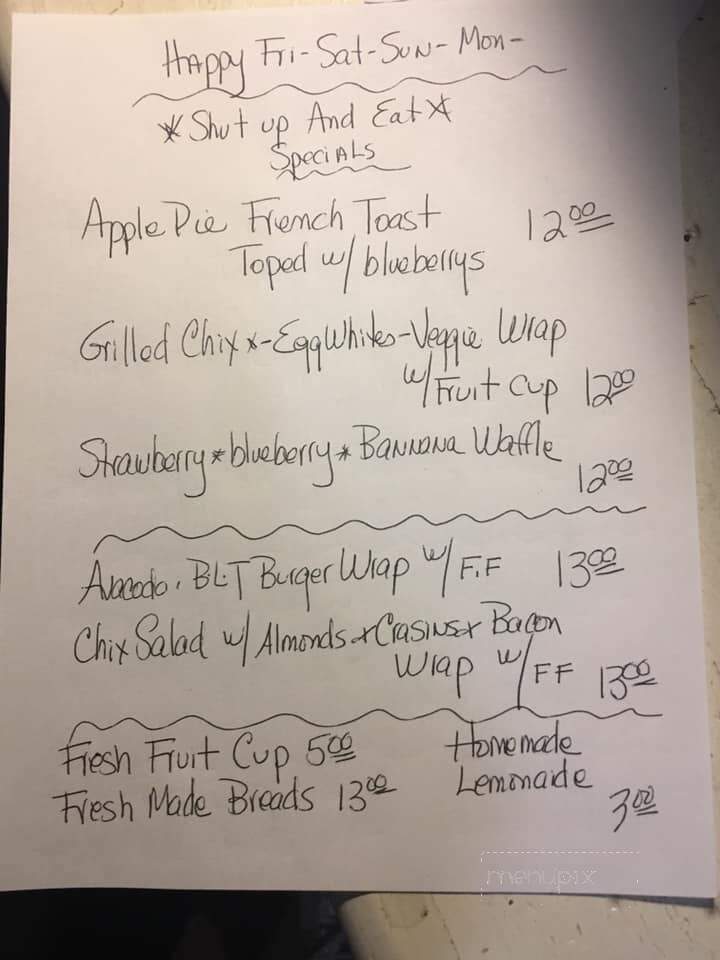 Happy Fri-Sat-Sun-Mon-
*Shut up And Eat*
Specials
Apple Pie French Toast 12.00
Toped w/ blueberrys
Grilled Chix x-Egg Whites-Veggie Wrap
w/ Fruit Cup 12.00
Strawberry*blueberry*Bannana Waffle
12.00
Avacado. BLT Burger Wrap w/ F.F 13.00
Chix Salad w/ Almonds x Crasins x Bacon
Wrap w/ FF 13.00
Fresh Fruit Cup 5.00
Fresh Made Breads 13.00
Homemade
Lemonaide
3.00
menupix